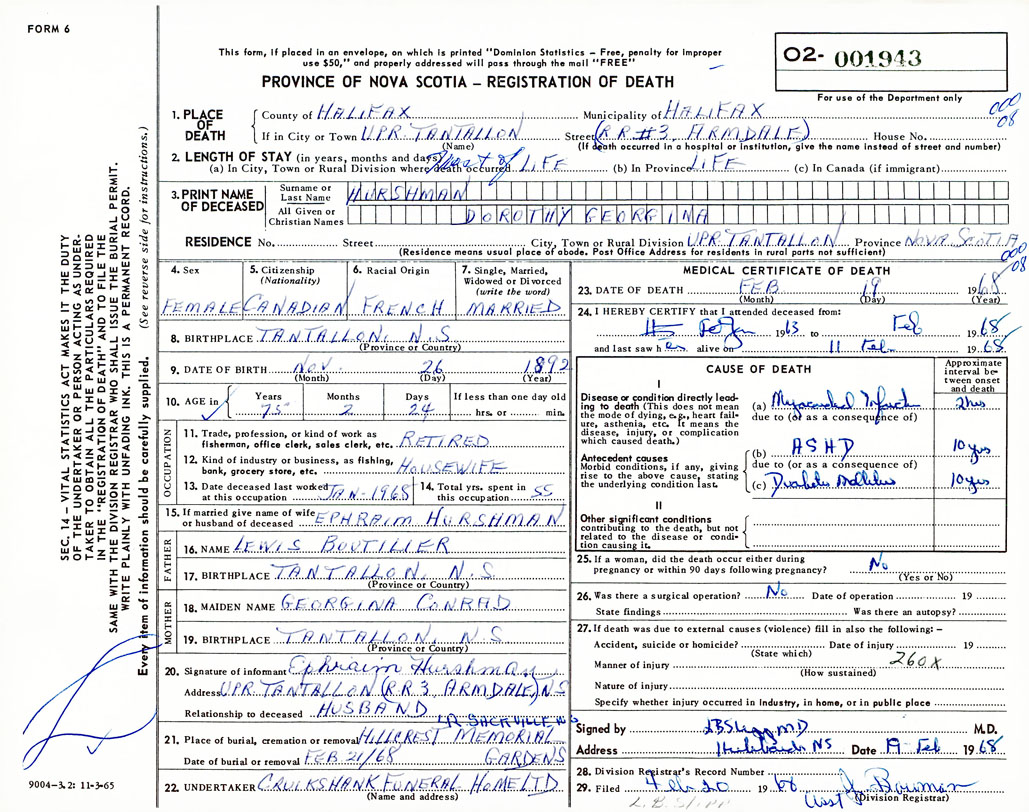 FORM 6
This form, if placed in an envelope, on which is printed "Dominion Statistics – Free, penalty for improper
use $50," and properly addressed will pass through the mail "FREE"
PROVINCE OF NOVA SCOTIA – REGISTRATION OF DEATH
O2- 001943
For use of the Department only
000
08
1. PLACE OF DEATH
County of HALIFAX Municipality of HALIFAX
If in City or Town UPR TANTALLON Street (RR#3, ARMDALE) House No.
(Name) (If death occurred in a hospital or institution, give the name instead of street and number)
2. LENGTH OF STAY (in years, months and days)
(a) In City, Town or Rural Division where death occurred of LIFE (b) In Province LIFE (c) In Canada (if immigrant)
3. PRINT NAME OF DECEASED
Surname or Last Name HURSHMAN
All Given or Christian Names DOROTHY GEORGINA
RESIDENCE No. Street City, Town or Rural Division UPR. TANTALLON Province NOVA SCOTIA
(Residence means usual place of abode. Post Office Address for residents in rural parts not sufficient)
000
08
4. Sex 5. Citizenship (Nationality) 6. Racial Origin 7. Single, Married, Widowed or Divorced (write the word)
FEMALE CANADIAN FRENCH MARRIED
8. BIRTHPLACE TANTALLON, N.S.
(Province or Country)
9. DATE OF BIRTH NOV. 26 1892
(Month) (Day) (Year)
10. AGE in Years Months Days If less than one day old
75 2 24 hrs. or min.
OCCUPATION
11. Trade, profession, or kind of work as fisherman, office clerk, sales clerk, etc. RETIRED
12. Kind of industry or business, as fishing, bank, grocery store, etc. HOUSEWIFE
13. Date deceased last worked at this occupation JAN-1968 14. Total yrs. spent in this occupation 55
15. If married give name of wife or husband of deceased EPHRAIM HURSHMAN
FATHER
16. NAME LEWIS BOUTILIER
17. BIRTHPLACE TANTALLON, N.S.
(Province or Country)
MOTHER
18. MAIDEN NAME GEORGINA CONRAD
19. BIRTHPLACE TANTALLON, N.S
(Province or Country)
20. Signature of informant Ephraim Hurshman
Address UPR TANTALLON (RR3, ARMDALE) N.S
Relationship to deceased HUSBAND
LR SACKVILLE NS
21. Place of burial, cremation or removal HILLCREST MEMORIAL
Date of burial or removal FEB 21/68 GARDENS
22. UNDERTAKER CRUIKSHANK FUNERAL HOME LTD
(Name and address)
MEDICAL CERTIFICATE OF DEATH
23. DATE OF DEATH FEB 19 1968
(Month) (Day) (Year)
24. I HEREBY CERTIFY that I attended deceased from:
1963 to Feb 1968
and last saw her alive on 11 Feb. 1968
CAUSE OF DEATH
Approximate interval between onset and death
I
Disease or condition directly leading to death (This does not mean the mode of dying, e.g., heart failure, asthenia, etc. It means the disease, injury, or complication which caused death.)
(a) Myocardial Infarct 2hrs
due to (or as a consequence of)
Antecedent causes
Morbid conditions, if any, giving rise to the above cause, stating the underlying condition last.
(b) ASHD 10 yrs
due to (or as a consequence of)
(c) Diabetes Mellitus 10 yrs
II
Other significant conditions
contributing to the death, but not related to the disease or condition causing it.
25. If a woman, did the death occur either during pregnancy or within 90 days following pregnancy? No
(Yes or No)
26. Was there a surgical operation? No Date of operation 19
State findings Was there an autopsy?
27. If death was due to external causes (violence) fill in also the following: –
Accident, suicide or homicide? Date of injury 19
(State which)
Manner of injury 260X
(How sustained)
Nature of injury
Specify whether injury occurred in industry, in home, or in public place
Signed by MD M.D.
Address NS Date 19 Feb 1968
28. Division Registrar's Record Number
29. Filed 19 68 Bowman
(Division Registrar)
SEC. 14 – VITAL STATISTICS ACT MAKES IT THE DUTY
OF THE UNDERTAKER OR PERSON ACTING AS UNDER-
TAKER TO OBTAIN ALL THE PARTICULARS REQUIRED
IN THE "REGISTRATION OF DEATH" AND TO FILE THE
SAME WITH THE DIVISION REGISTRAR WHO SHALL ISSUE THE BURIAL PERMIT.
WRITE PLAINLY WITH UNFADING INK. THIS IS A PERMANENT RECORD.
Every item of information should be carefully supplied. (See reverse side for instructions.)
9004-3.2: 11-3-65